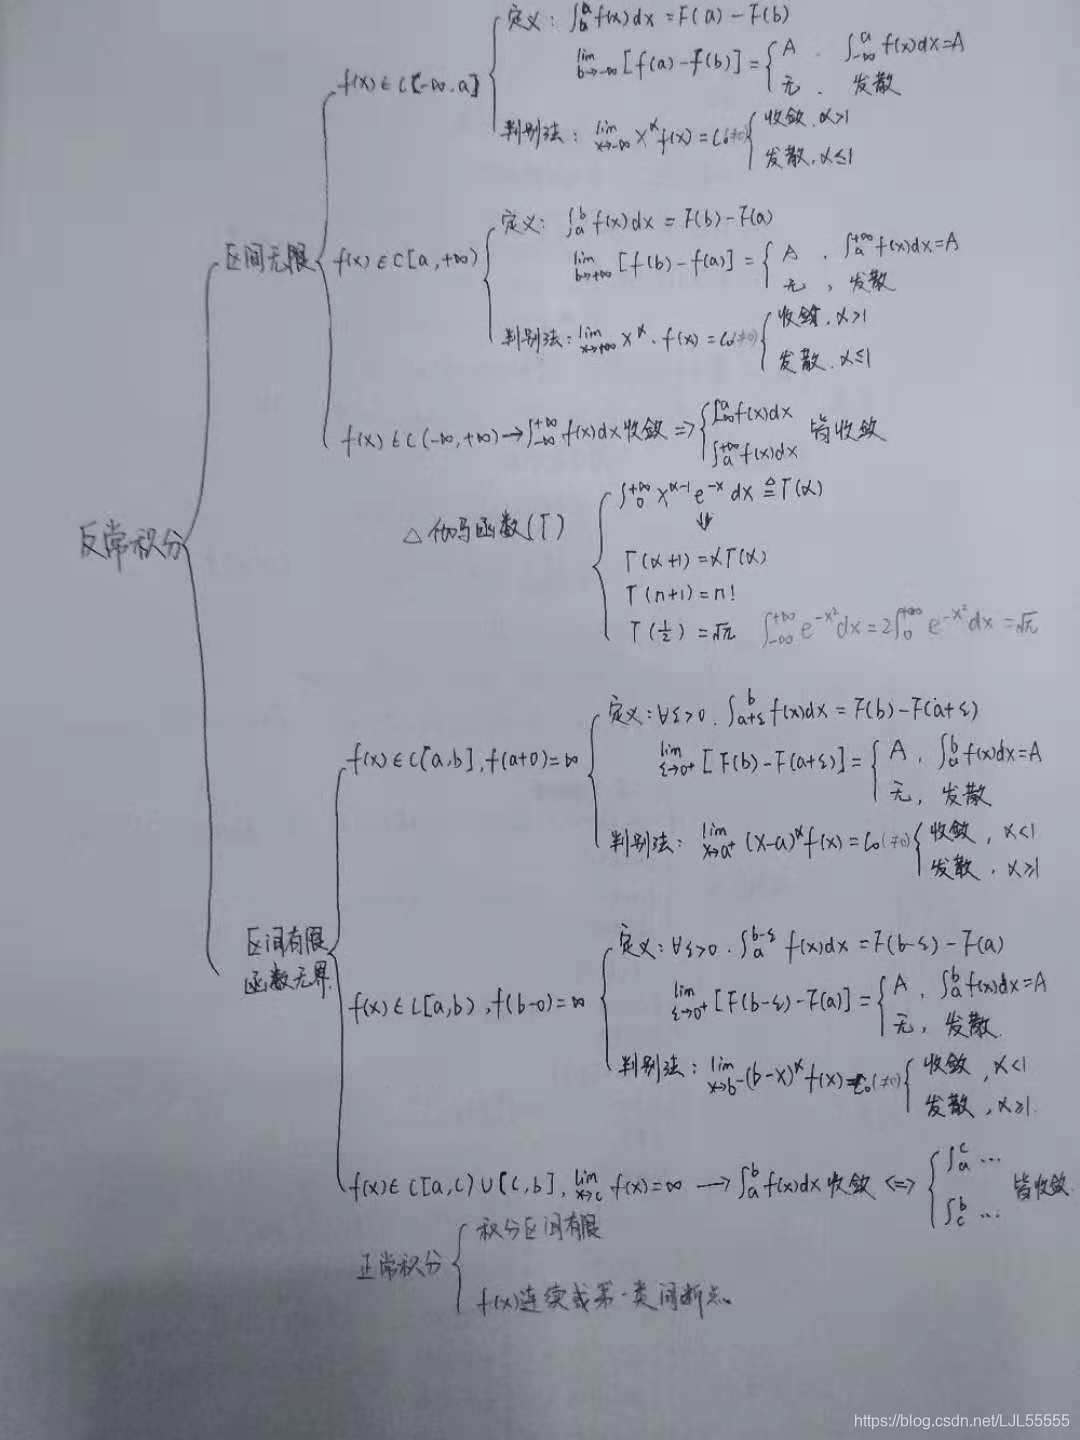 定义: ∫_b^a f(x)dx = F(a) - F(b)
lim_{b→-∞} [f(a) - f(b)] = { A , ∫_{-∞}^a f(x)dx = A
无 . 发散
f(x) ∈ C(-∞, a]
判别法: lim_{x→-∞} x^α f(x) = C₀(≠0) { 收敛, α>1
发散, α≤1
定义: ∫_a^b f(x)dx = F(b) - F(a)
区间无限
f(x) ∈ C[a, +∞)
lim_{b→+∞} [f(b) - f(a)] = { A , ∫_a^{+∞} f(x)dx = A
无 , 发散
判别法: lim_{x→+∞} x^α · f(x) = C₀(≠0) { 收敛, α>1
发散, α≤1
f(x) ∈ C(-∞, +∞) → ∫_{-∞}^{+∞} f(x)dx 收敛 ⇒ { ∫_{-∞}^a f(x)dx
∫_a^{+∞} f(x)dx 皆收敛
反常积分
△ 伽马函数(Γ)
∫_0^{+∞} x^{α-1} e^{-x} dx ≜ Γ(α)
⇓
Γ(α+1) = αΓ(α)
Γ(n+1) = n!
Γ(1/2) = √π ∫_{-∞}^{+∞} e^{-x²} dx = 2∫_0^{+∞} e^{-x²} dx = √π
定义: ∀ε>0. ∫_{a+ε}^b f(x)dx = F(b) - F(a+ε)
f(x) ∈ C[a, b], f(a+0) = ∞
lim_{ε→0⁺} [F(b) - F(a+ε)] = { A , ∫_a^b f(x)dx = A
无, 发散
判别法: lim_{x→a⁺} (x-a)^α f(x) = C₀(≠0) { 收敛, α<1
发散, α≥1
区间有限
函数无界.
定义: ∀ε>0. ∫_a^{b-ε} f(x)dx = F(b-ε) - F(a)
f(x) ∈ C[a, b), f(b-0) = ∞
lim_{ε→0⁺} [F(b-ε) - F(a)] = { A , ∫_a^b f(x)dx = A
无, 发散.
判别法: lim_{x→b⁻} (b-x)^α f(x) = C₀(≠0) { 收敛, α<1
发散, α≥1.
f(x) ∈ C[a, c) ∪ [c, b], lim_{x→c} f(x) = ∞ → ∫_a^b f(x)dx 收敛 ⇔ { ∫_a^c ...
∫_c^b ... 皆收敛.
正常积分
积分区间有限
f(x)连续或第一类间断点。
https://blog.csdn.net/LJL55555